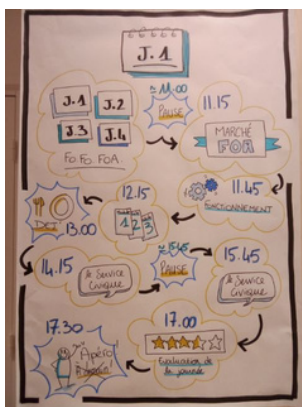 J.1
J.1 J.2
J.3 J.4
FO.FO FOA.
≈ 11.00
PAUSE
11.15
MARCHÉ
FOA
11.45
FONCTIONNEMENT
12.15
1 2 3
13.00
14.15
le Service
Civique
≈ 15.45
PAUSE
15.45
le Service
Civique
17.00
Evaluation de
la journée
17.30
Apéro!